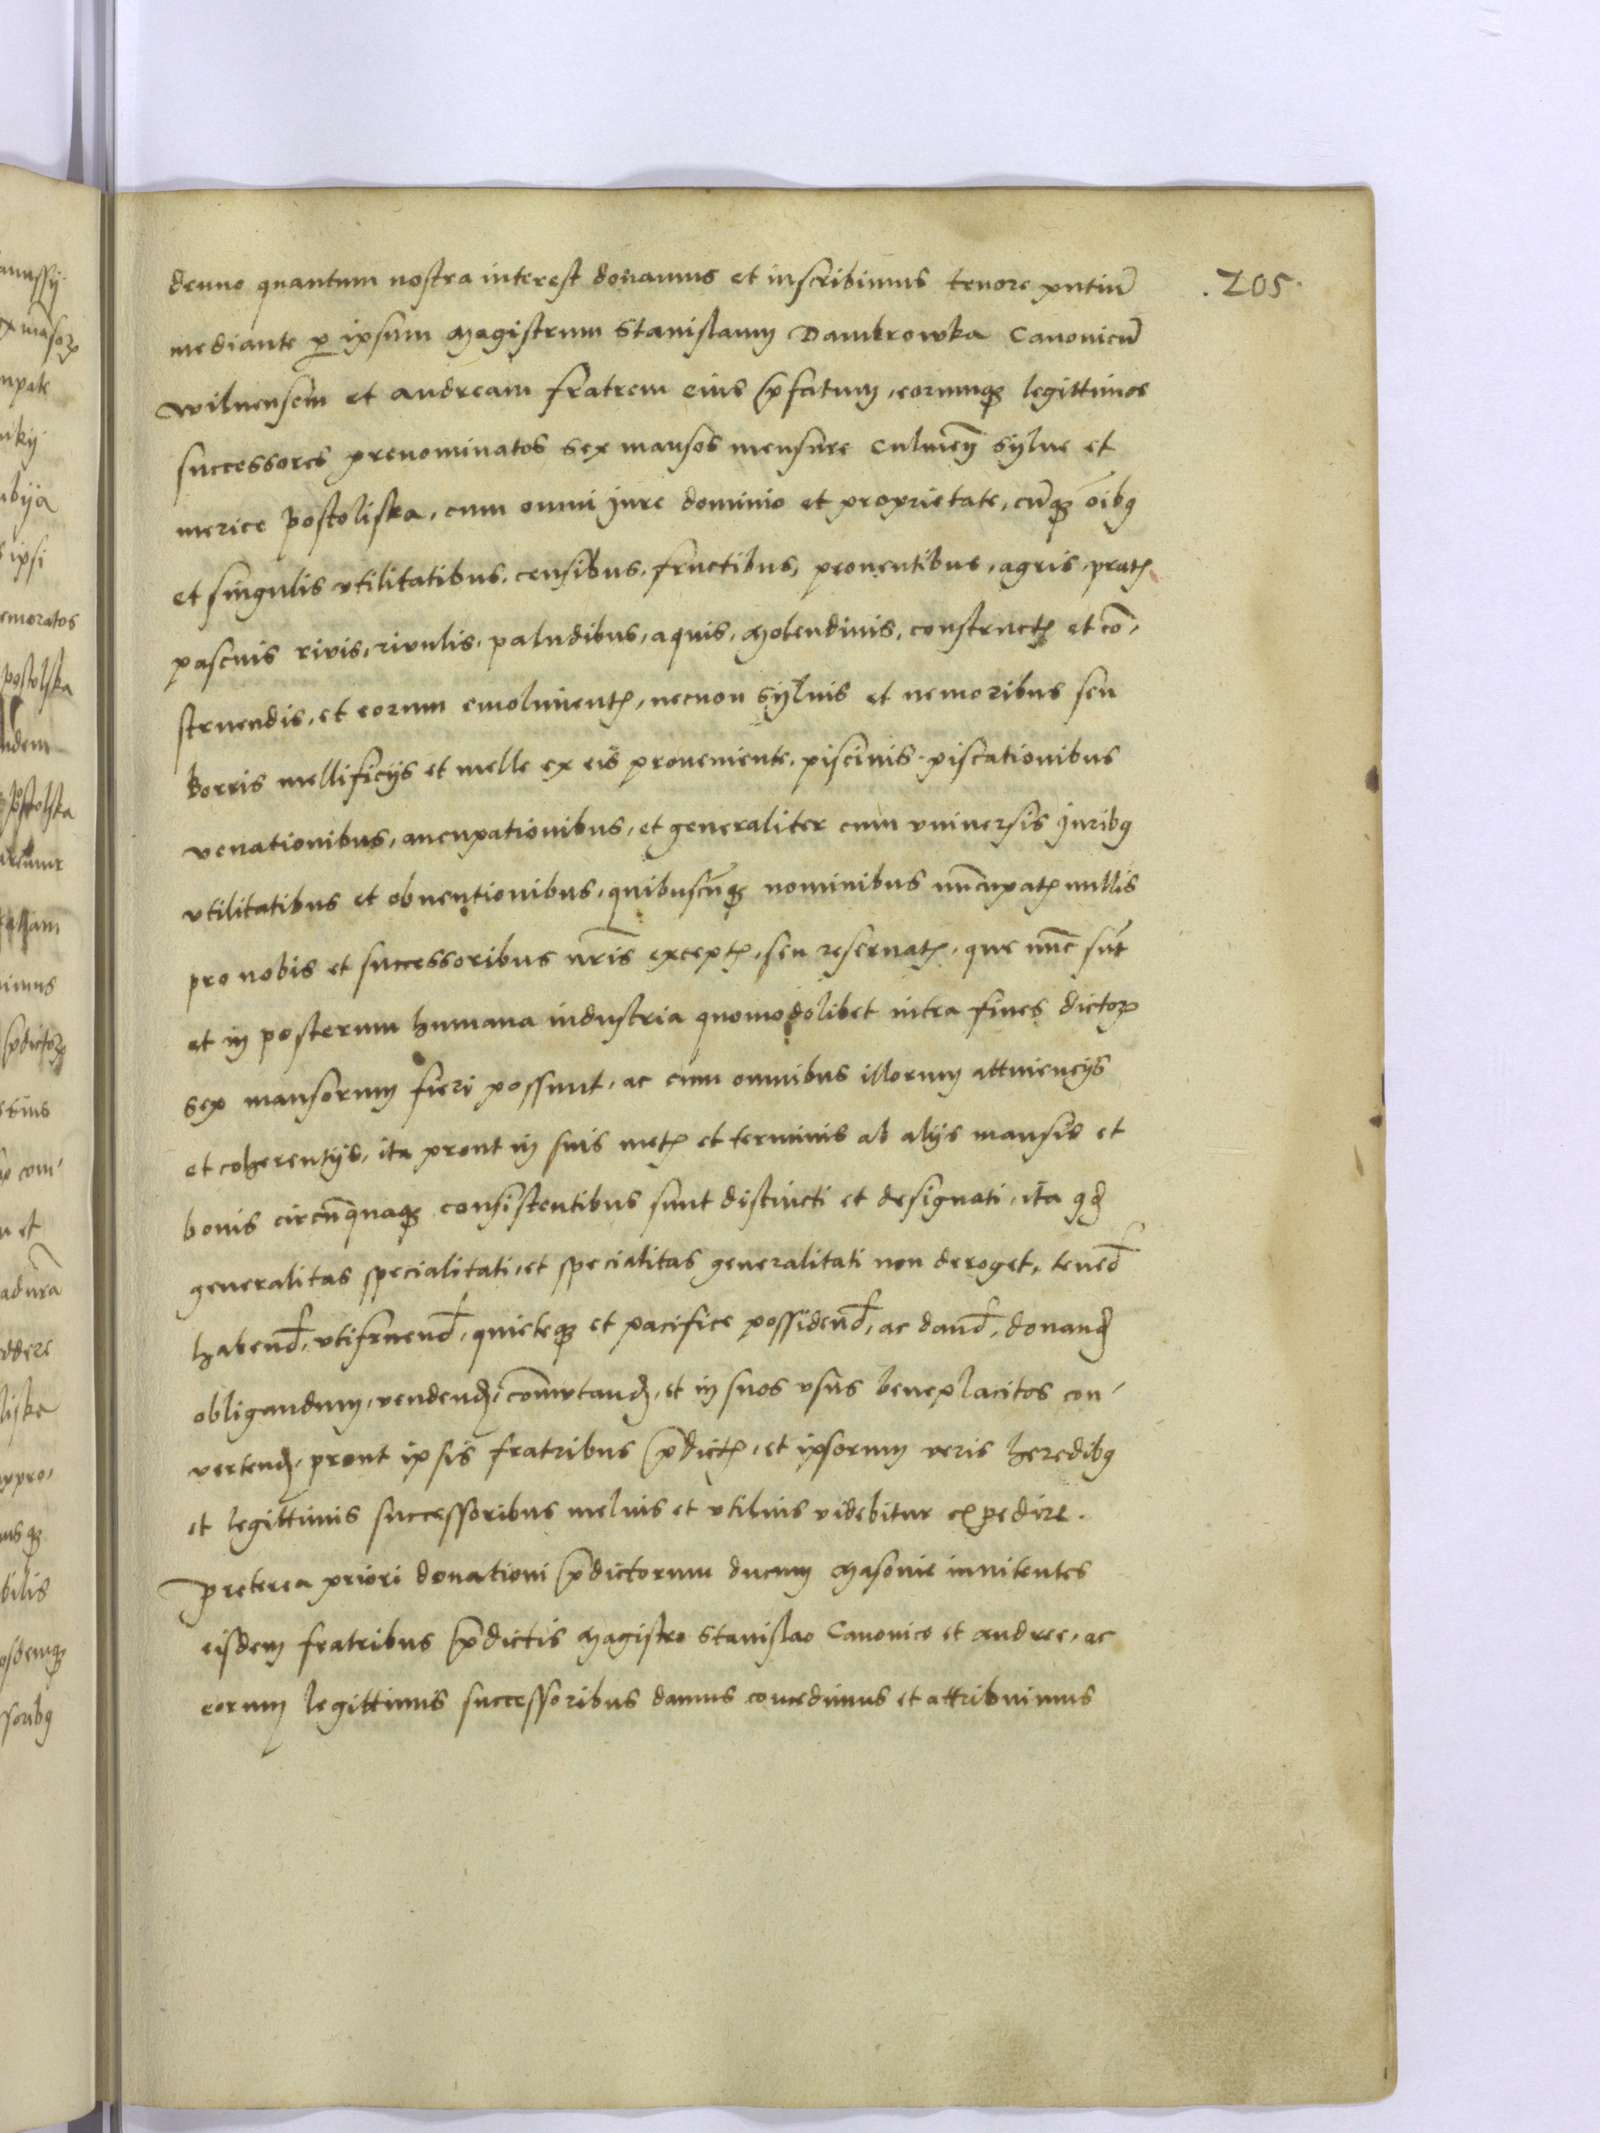 denuo quantum nostra interest donamus et inscribimus tenore pn̄tiū .205.
mediante ꝑ ipsum Magistrum Stanislaum Dambrowka Canonicū
Wilnensem et Andream fratrem eius p̄fatum, eorumqꝫ legittimos
successores prenominatos sex mansos mensure Culmeñ Sylue et
merice Postoliska, cum omni Jure dominio et proprietate, cūqꝫ oībꝰ
et singulis vtilitatibus, censibus, fructibus, prouentibus, agris, pratꝭ
pascuis rivis, riuulis, paludibus, aquis, Molendinis, constructꝭ et cō-
struendis, et eorum emolumentꝭ, necnon Syluis et nemoribus seu
Borris mellificijs et melle ex eis proueniente, piscinis, piscationibus
venationibus, aucupationibus, et generaliter cum vniuersis Juribꝰ
vtilitatibus et obuentionibus, quibuscūqꝫ nominibus nūcupatꝭ nullis
pro nobis et successoribus nr̄is exceptꝭ, seu reseruatꝭ, que nūc sūt
et in posterum humana industria quomodolibet intra fines dictoꝝ
sex mansorum fieri possunt, ac cum omnibus illorum attinencijs
et coherentijs, ita prout in suis metꝭ et terminis ab alijs mansis et
bonis circūquaqꝫ consistentibus sunt distincti et designati, ita qđ
generalitas specialitati, et specialitas generalitati non deroget, teneđ
habenđ, vtifruenđ, quieteqꝫ et pacifice possidenđ, ac danđ, donanđ
obligandum, vendenđ, com̄utanđ, et in suos vsus beneplacitos con-
vertenđ, prout ipsis fratribus p̄dictꝭ, et ipsorum veris heredibꝰ
et legittimis successoribus melius et vtilius videbitur exꝑedire.
Preterea priori donationi p̄dictorum ducum Masouie innitentes
eisdem fratribus p̄dictis Magistro Stanislao Canonico et Andree, ac
eorum legittimis successoribus damus concedimus et attribuimus